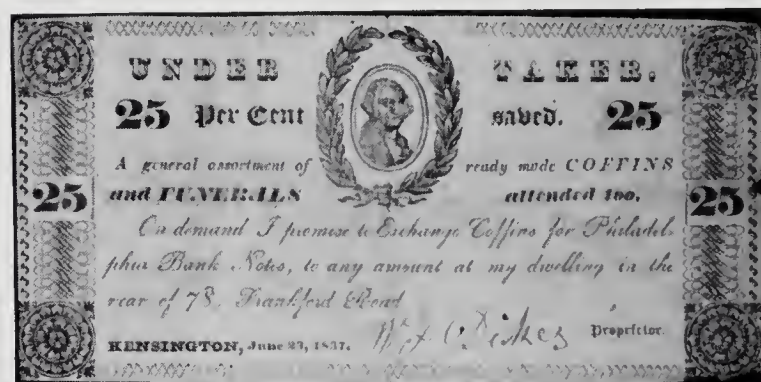 UNDER TAKER.
25 Per Cent saved. 25
A general assortment of ready made COFFINS
25 and FUNERALS attended too. 25
On demand I promise to Exchange Coffins for Philadel-
phia Bank Notes, to any amount at my dwelling in the
rear of 78, Frankford Road
KENSINGTON, June 23, 1837. Proprietor.